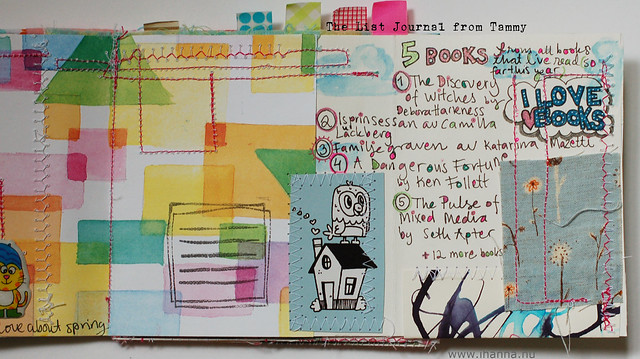 The List Journal from Tammy
5 BOOKS
from all books
that I've read (so
far this year)
① The Discovery
of Witches by
Deborah Harkness
② Isprinsessan av Camilla
Läckberg
③ Familjegraven av Katarina Mazetti
④ A Dangerous Fortune
by Ken Follett
⑤ The Pulse of
Mixed Media
by Seth Apter
+ 12 more books
I LOVE
BOOKS
love about spring
www.ihanna.nu